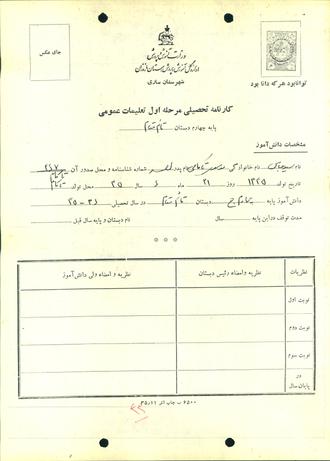 جای عکس
وزارت آموزش و پرورش
اداره کل آموزش و پرورش استان مازندران
شهرستان ساری
توانا بود هر که دانا بود
کارنامه تحصیلی مرحله اول تعلیمات عمومی
پایه چهارم دبستان
مشخصات دانش‌آموز
نام نام خانوادگی نام پدر شماره شناسنامه و محل صدور آن ۲۶۷
تاریخ تولد ۱۳۲۵ روز ۲۱ ماه ۶ سال ۲۵ محل تولد
دانش‌آموز پایه دبستان در سال تحصیلی ۳۶ - ۳۵
مدت توقف در این پایه سال نام دبستان و پایه سال قبل
نظریات
نظریه و امضاء رئیس دبستان
نظریه و امضاء ولی دانش‌آموز
نوبت اول
نوبت دوم
نوبت سوم
در پایان سال
۶۵۰۰ ب چاپ آذر ۳۵/۱۱